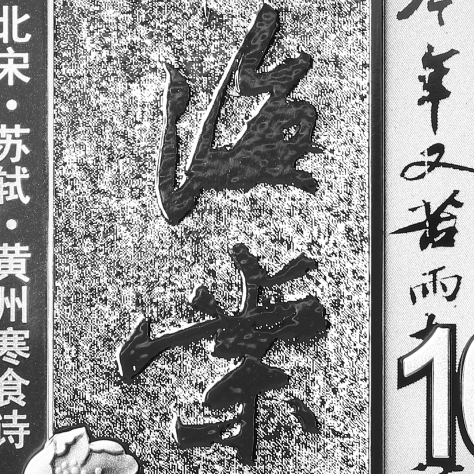 北宋·苏轼·黄州寒食诗
海棠
今年又苦雨
10